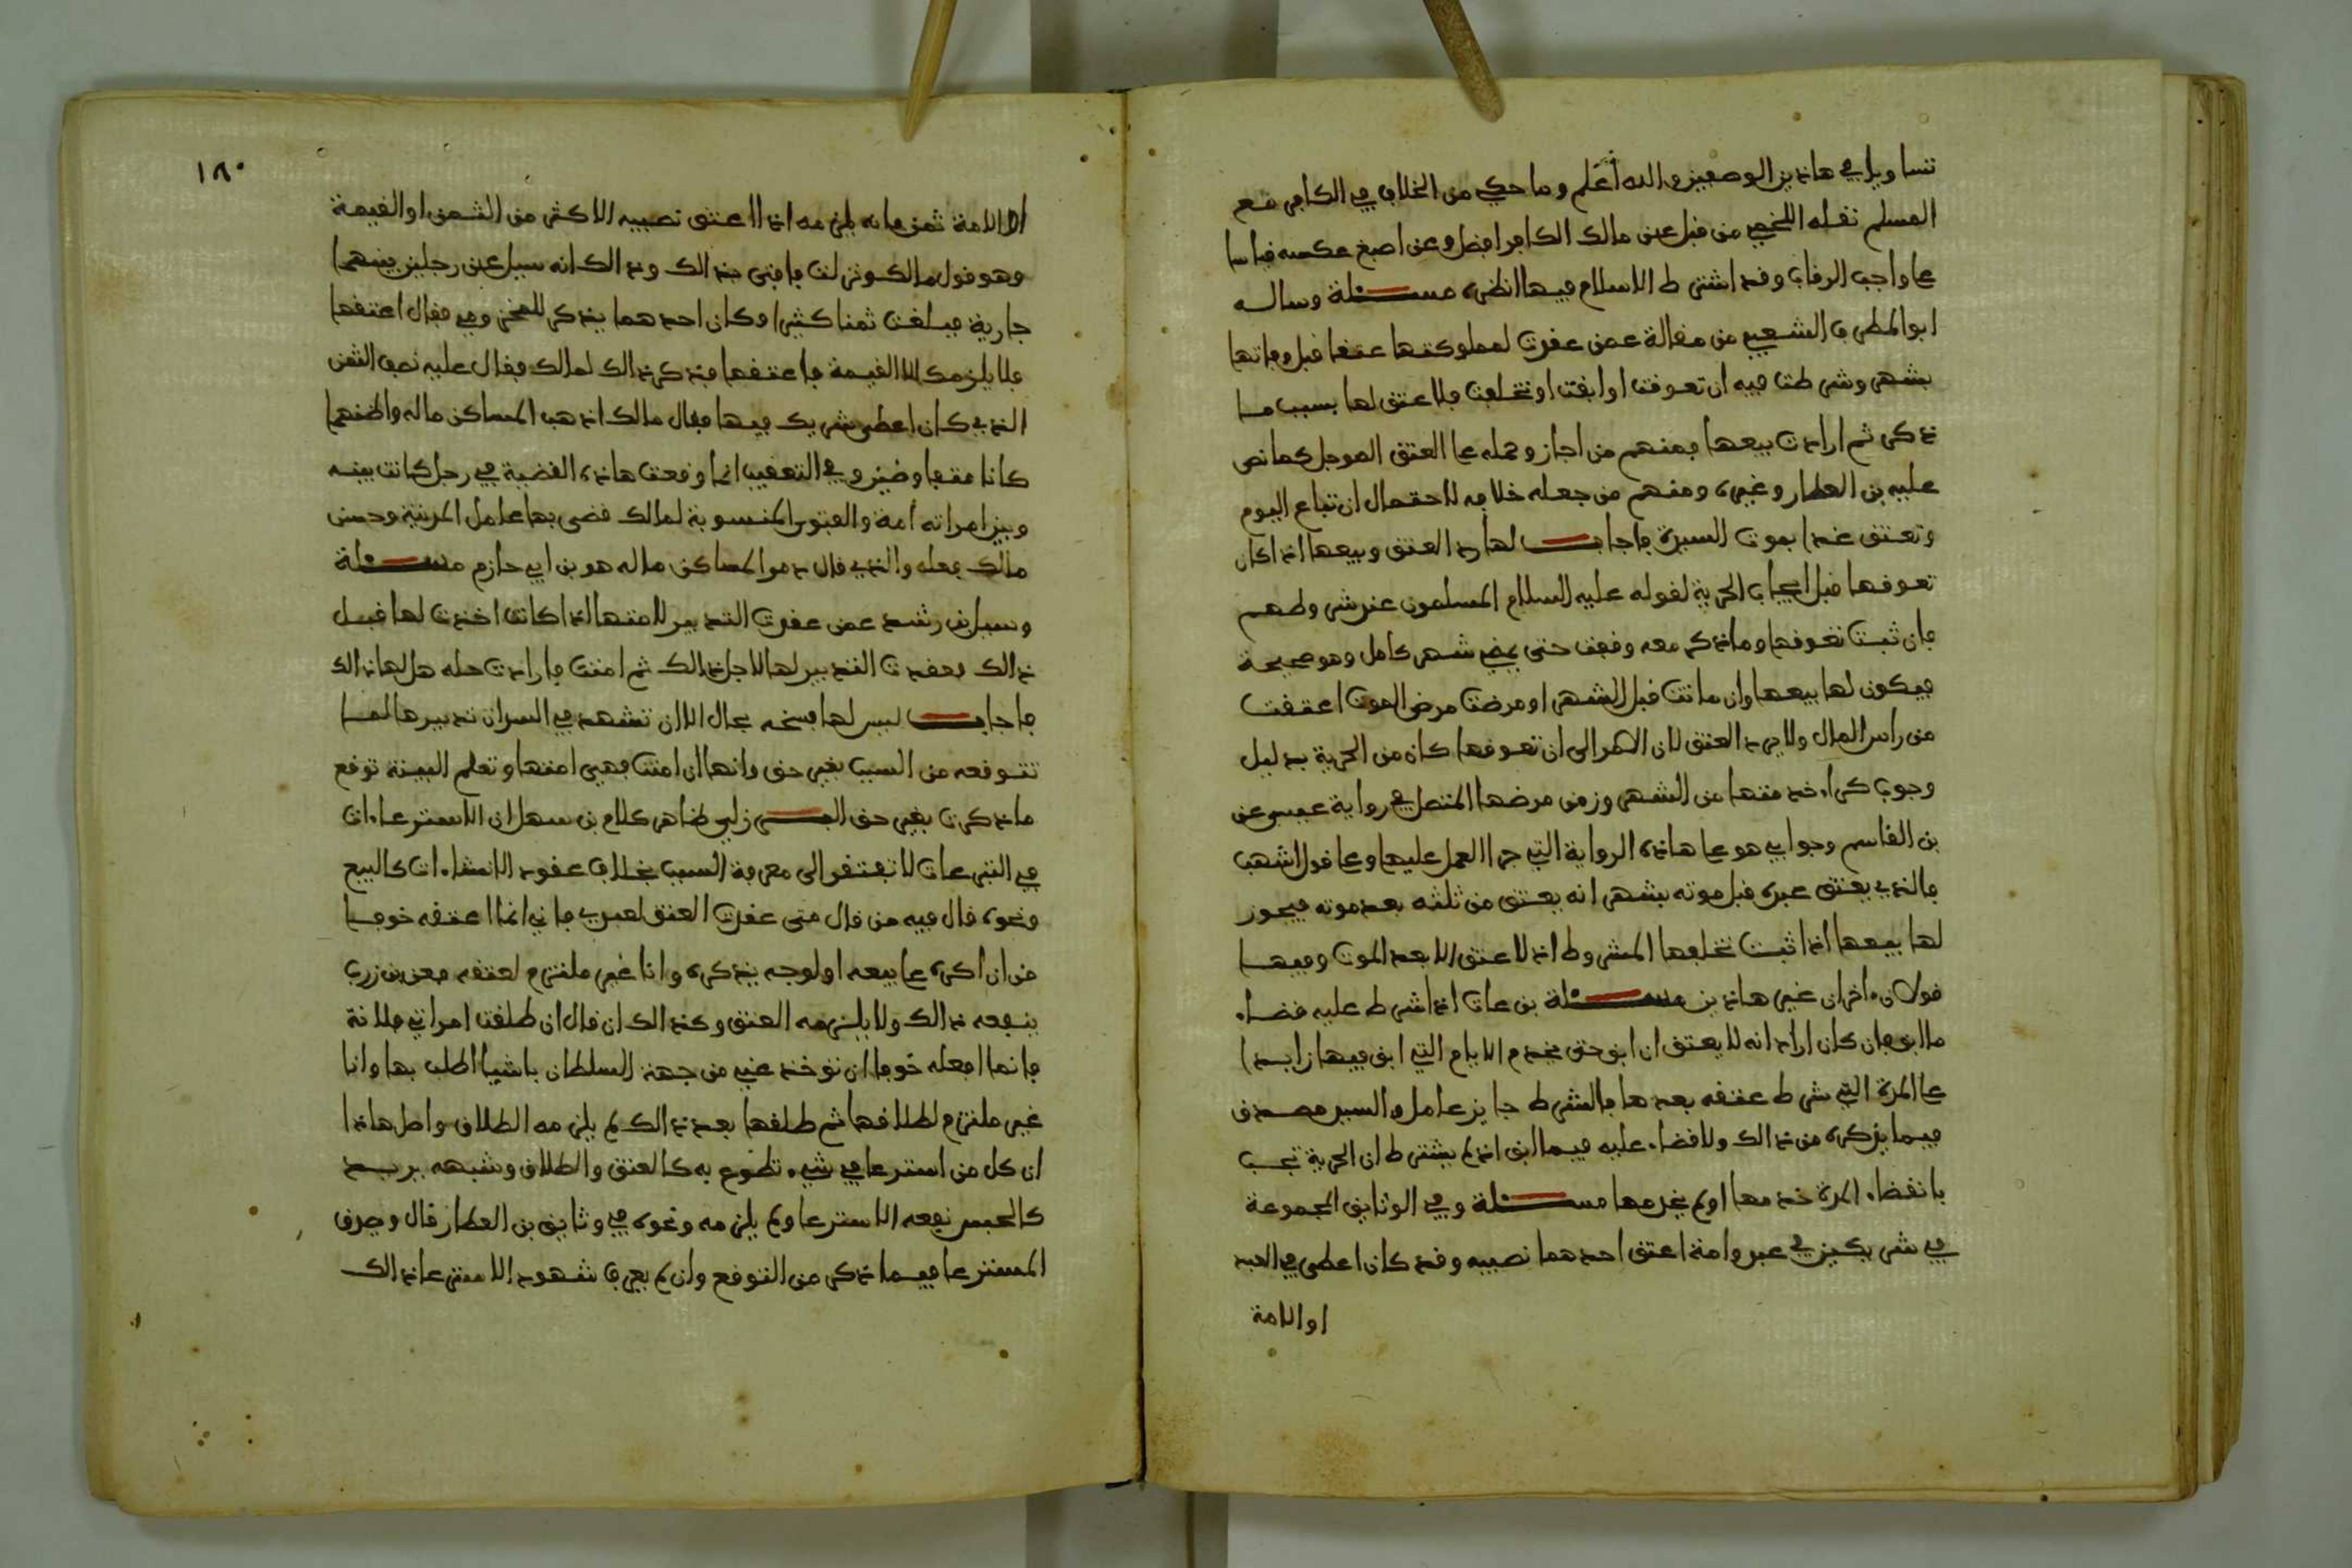 تساويا في هاذين الوصفين والله أعلم وما حكي من الخلاف في الكافر مع
المسلم نقله اللخمي من قبل عن مالك الكافر افضل وعن اصبغ عكسه قياسا
على واجب الرقاب وقد اشترط الاسلام فيها انظره مسئلة وساله
ابو المطرف الشعبي من مقالة عمن عقدت لمملوكتها عتقا قبل وفاتها
بشهر وشرطت فيه ان تعوقت او ابقت او تخلفت فلا عتق لها بسبب ما
ذكر ثم ارادت بيعها فمنهم من اجاز وحمله على العتق الموجل كما نص
عليه بن العطار وغيره ومنهم من جعله خلافه لاحتمال ان تباع اليوم
وتعتق غدا بموت السيدة فاجاب لها رد العتق وبيعها اذا كان
تعوقها قبل ايجاب الحرية لقوله عليه السلام المسلمون عند شروطهم
فان ثبت تعوقها وما ذكر معه وقفت حتى يمضي شهر كامل وهو صحيحة
فيكون لها بيعها وان ماتت قبل الشهر او مرضت مرض الموت اعتقت
من راس المال ولا يرد العتق لان الامر الى ان تعوقها كان من الحرية بدليل
وجوب كراء خدمتها من الشهر وزمن مرضها المتصل في رواية عيسى عن
بن القاسم وجوابي هو على هاذه الرواية التي جرا العمل عليها وعلى قول اشهب
فالذي يعتق عبده قبل موته بشهر انه يعتق من ثلثه بعد موته فيجوز
لها بيعها اذا ثبت تخلفها المشروط اذ لا عتق الا بعد الموت وفيها
قولان ءاخران غير هاذين مسئلة بن عات اذا شرط عليه قضاء
ما ابق فان كان اراد انه لا يعتق ان ابق حتى يخدم الايام التي ابق فيها زايدا
على المدة التي شرط عتقه بعدها فالشرط جايز عامل والسيد مصدق
فيما يذكره من ذالك ولا قضاء عليه فيما ابق اذ لم يشترط ان الحرية تجب
بانقضاء المدة خدمها او لم يخدمها مسئلة وفي الوثايق المجموعة
في شريكين في عبد وامة اعتق احدهما نصيبه وقد كان اعطى في العبد
او الامة
١٨٠
او الامة ثمن فانه يلزمه اذا اعتق نصيبه الاكثر من الثمن او القيمة
وهو قول مالك ونزلت فافتى بذالك وذالك انه سيل عن رجلين بينهما
جارية فبلغت ثمنا كثيرا وكان احدهما يذكر للمخزومي فقال اعتقها
فلا يلزمك الا القيمة فاعتقها فذكر ذالك لمالك فقال عليه نصف الثمن
الذي كان اعطى شريك فيها فقال مالك اذهب المساكن ماله واظنهما
كانا متفاوضين وفي التعقيب انما وقعت هاذه القضية في رجل كانت بينه
وبين امراته أمة والفتوى المنسوبة لمالك قضى بها عامل المدينة وحسن
مالك فعله والذي قال دموا المساكن ماله هو بن ابي حازم مسئلة
وسيل بن رشد عمن عقدت التدبير لامتها اذا كانت اخذت لها قبل
ذالك فعقدت التدبير لها لاجل ذالك ثم امنت فارادت حله هل لها ذالك
فاجاب ليس لها فسخه بحال الا ان تشهد في السر ان تدبيرها لما
تتوقعه من السبب بغير حق وانها ان امنت فهي امتها وتعلم البينة توقع
ما ذكرت بغير حق البرزلي ظاهر كلام بن سهل ان الاسترعاءات
في التبرعات لا تفتقر الى معرفة السبب بخلاف عقود الانشاءات كالبيع
ونحوه قال فيه من قال متى عقدت العتق لعبدي فاني انما اعتقه خوفا
من ان اكره على بيعه او لوجه يذكره وانا غير ملتزم لعتقه فعن بن زرب
ينفعه ذالك ولا يلزمه العتق وكذالك ان قال ان طلقت امراتي فلانة
فانما افعله خوفا ان نوخذ عني من جهة السلطان باشيا اطلب بها وانا
غير ملتزم لطلاقها ثم طلقها بعد ذالك لم يلزمه الطلاق واصل هاذا
ان كل من استرعا في شيء تطوع به كالعتق والطلاق وشبهه يريد
كالحبس نفعه الاسترعا ولم يلزمه ونحوه في وثايق بن العطار قال وصدق
المسترعا فيما ذكر من التوقع وان لم يعرف شهود الاسترعا ذالك